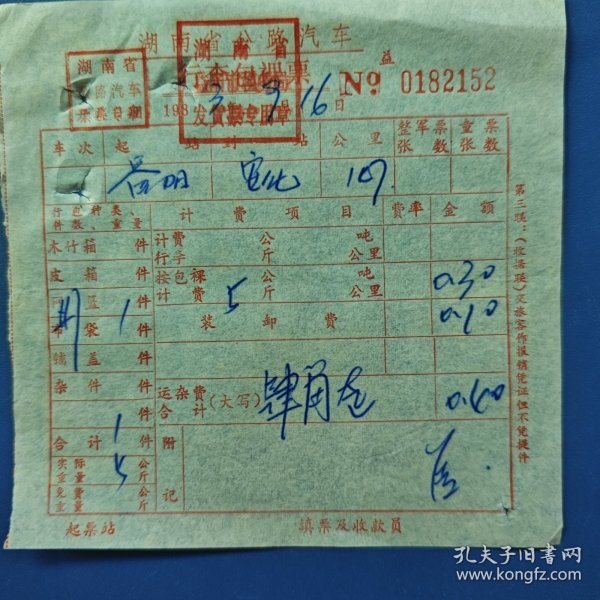 湖南省公路汽车
行李包裹票
湖南省
公路汽车
票专用
湖南省
发货票专用章
益
№ 0182152
198 3年 9月 16日
车次 起 站 到 站 公里 整军票张数 童票张数
岳阳 107
行包种类、件数、重量 计费项目 费率 金额
木竹箱 件 计费行李 公斤 吨公里
皮箱 件 按包裹计费 5 公斤 吨公里 0.30
篮 1 件 装卸费 0.10
布袋 件
铺盖 件
杂件 件 运杂费合计 (大写) 肆角 0.40
件
合计 1 件 附记
实际重量 5 公斤
免费重量 公斤
起票站 填票及收款员
第三联：(收据联)交旅客作报销凭证但不凭提件
孔夫子旧书网
www.kongfz.com